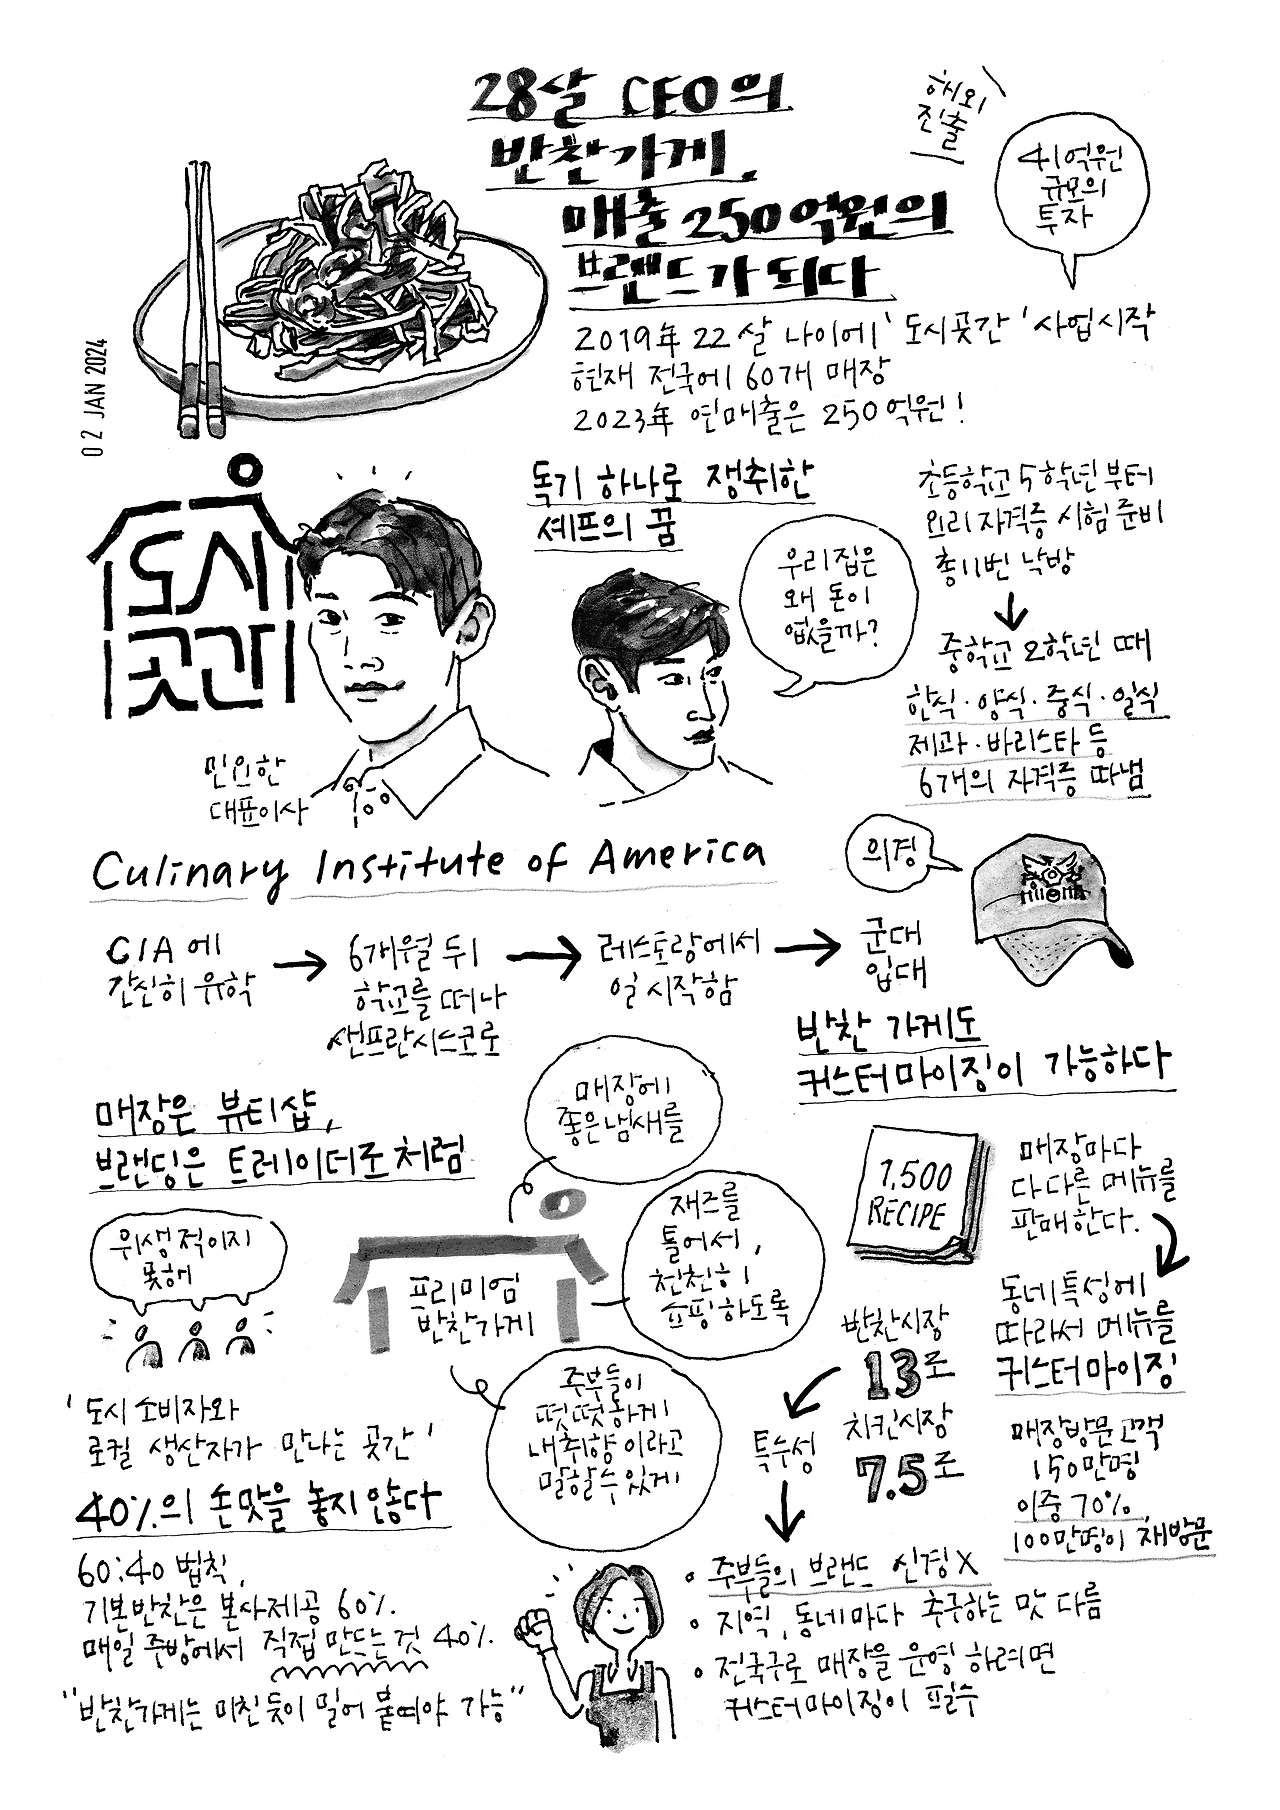 28살 CEO의
반찬가게,
매출 250억원의
브랜드가 되다
해외
진출
41억원
규모의
투자
2019年 22살 나이에 '도시곳간' 사업시작
현재 전국에 60개 매장
2023年 연매출은 250억원!
02 JAN 2024
도시
곳간
민요한
대표이사
독기 하나로 쟁취한
셰프의 꿈
우리집은
왜 돈이
없을까?
초등학교 5학년부터
요리자격증 시험 준비
총 11번 낙방
중학교 2학년 때
한식·양식·중식·일식
제과·바리스타 등
6개의 자격증 따냄
Culinary Institute of America
CIA에
간신히 유학
6개월 뒤
학교를 떠나
샌프란시스코로
레스토랑에서
일 시작함
군대
입대
의경
매장은 뷰티샵,
브랜딩은 트레이더조처럼
위생적이지
못해
'도시 소비자와
로컬 생산자가 만나는 곳간'
프리미엄
반찬가게
매장에
좋은냄새를
재즈를
틀어서,
천천히
쇼핑하도록
주부들이
떳떳하게
내취향이라고
말할수있게
반찬 가게도
커스터마이징이 가능하다
1,500
RECIPE
매장마다
다 다른 메뉴를
판매한다.
동네특성에
따라서 메뉴를
커스터마이징
매장방문고객
150만명
이중 70%,
100만명이 재방문
반찬시장
13조
치킨시장
7.5조
특수성
• 주부들의 브랜드 신경X
• 지역, 동네마다 추구하는 맛 다름
• 전국구로 매장을 운영 하려면
커스터마이징이 필수
40%의 손맛을 놓지않다
60:40 법칙,
기본반찬은 본사제공 60%
매일 주방에서 직접 만드는것 40%
"반찬가게는 미친듯이 밀어 붙여야 가능"